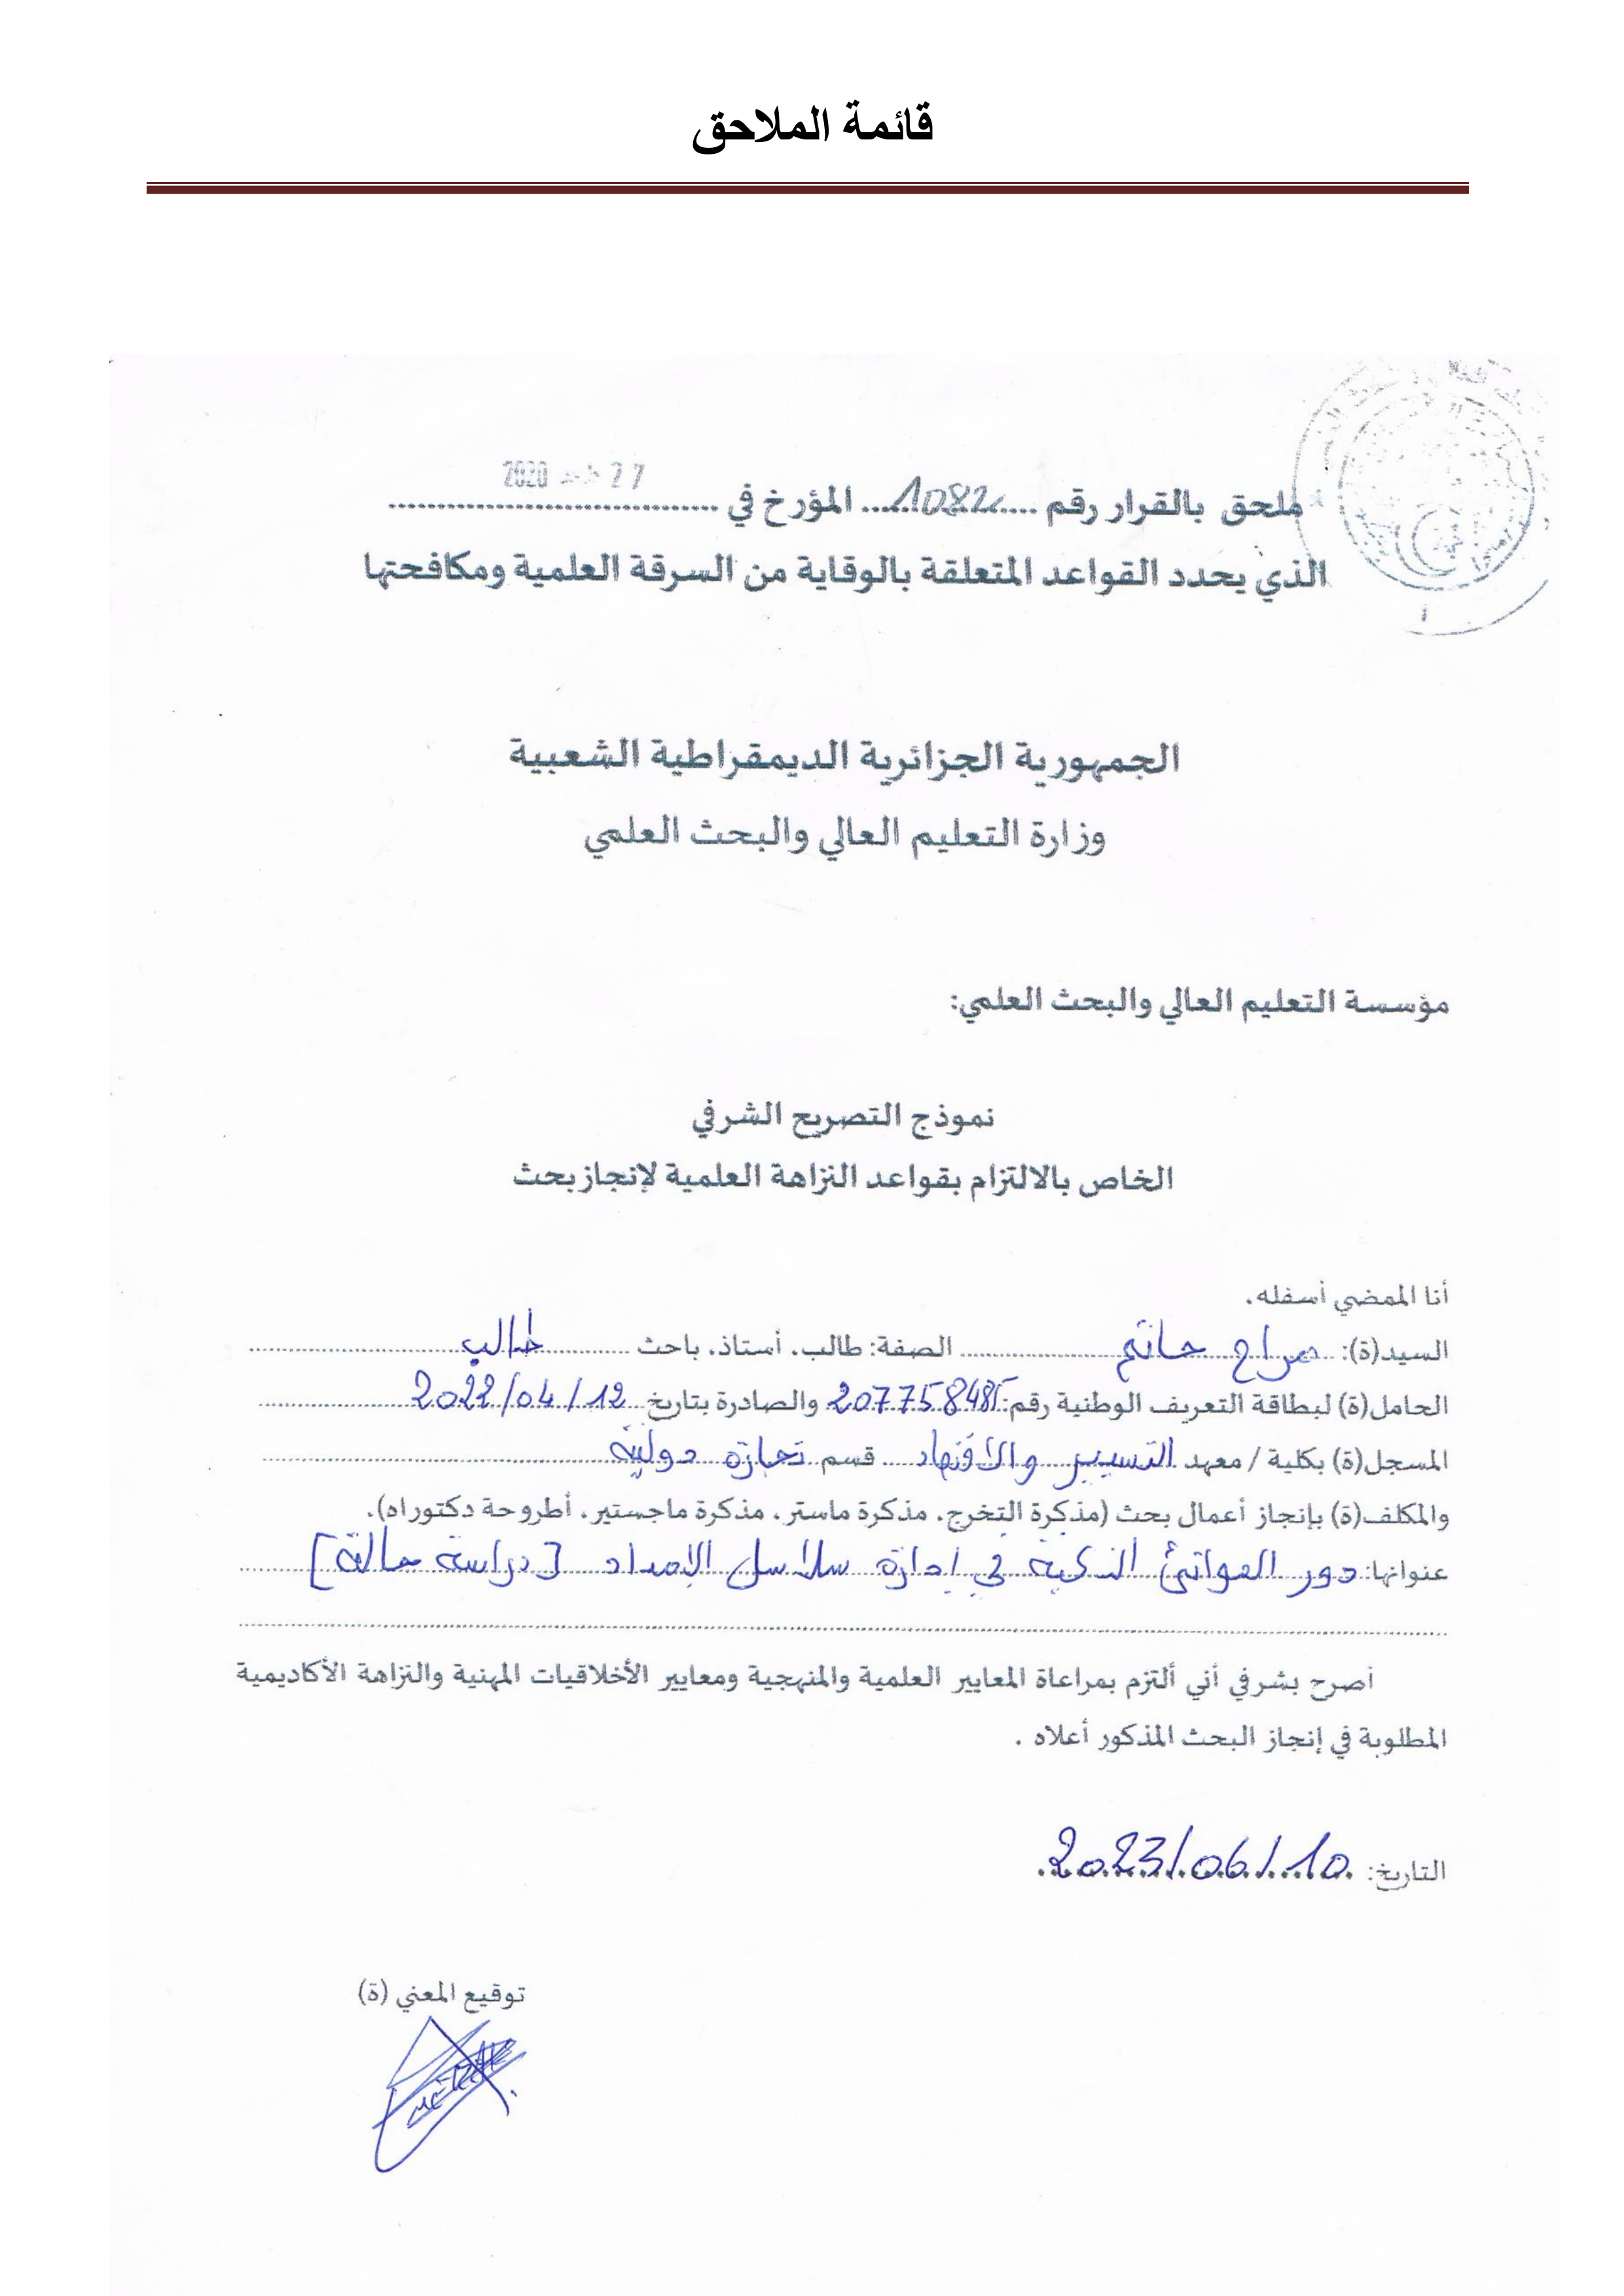 قائمة الملاحق
ملحق بالقرار رقم ....1082.... المؤرخ في 27 2020
الذي يحدد القواعد المتعلقة بالوقاية من السرقة العلمية ومكافحتها
الجمهورية الجزائرية الديمقراطية الشعبية
وزارة التعليم العالي والبحث العلمي
مؤسسة التعليم العالي والبحث العلمي:
نموذج التصريح الشرفي
الخاص بالالتزام بقواعد النزاهة العلمية لإنجاز بحث
أنا الممضي أسفله.
السيد(ة): حاتم الصفة: طالب. أستاذ. باحث طالب
الحامل(ة) لبطاقة التعريف الوطنية رقم: والصادرة بتاريخ 2022/04/12
المسجل(ة) بكلية / معهد التسيير والاقتصاد قسم تجارة دولية
والمكلف(ة) بإنجاز أعمال بحث (مذكرة التخرج. مذكرة ماستر. مذكرة ماجستير. أطروحة دكتوراه).
عنوانها: دور الموانئ الذكية في إدارة سلاسل الإمداد [دراسة حالة]
أصرح بشرفي أني ألتزم بمراعاة المعايير العلمية والمنهجية ومعايير الأخلاقيات المهنية والنزاهة الأكاديمية
المطلوبة في إنجاز البحث المذكور أعلاه .
التاريخ: 2023/06/10
توقيع المعني (ة)